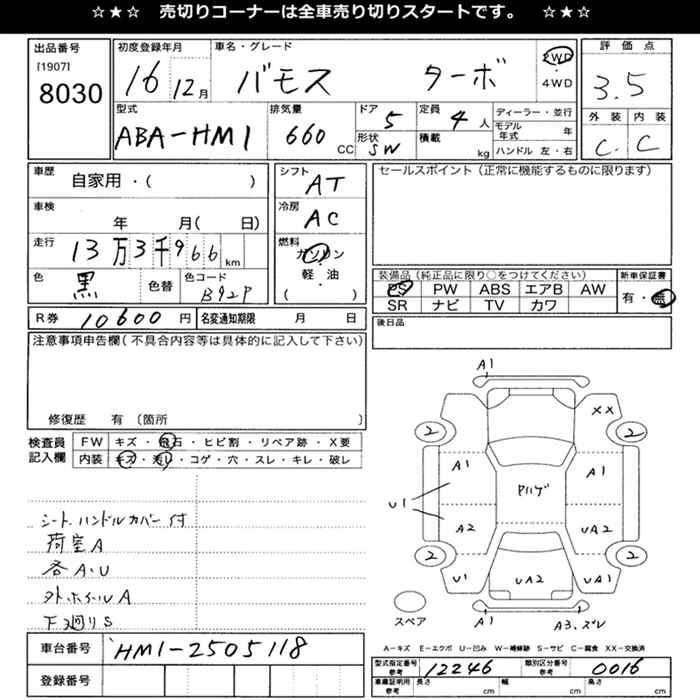 ☆★☆ 売切りコーナーは全車売り切りスタートです。 ☆★☆
出品番号
[1907]
8030
初度登録年月
16 12月
車名・グレード
バモス ターボ
2WD
・
4WD
評価点
3.5
外装 内装
C. C
型式
ABA-HM1
排気量
660 CC
ドア 5
形状 SW
定員 4人
積載 kg
ディーラー・並行
モデル年式 年
ハンドル 左・右
車歴
自家用・( )
車検
年 月( 日)
走行
13万3千966km
色
黒 色替
色コード
B92P
シフト
AT
冷房
AC
燃料
ガソリン
・
軽・油
( )
セールスポイント(正常に機能するものに限ります)
装備品(純正品に限り○をつけてください)
PS PW ABS エアB AW
SR ナビ TV カワ
新車保証書
有・無
R券 10600円 名変通知期限 月 日
後日品
注意事項申告欄(不具合内容等は具体的に記入して下さい)
修復歴 有 〔箇所
検査員
記入欄
FW キズ・飛石・ヒビ割・リペア跡・X要
内装 キズ・汚れ・コゲ・穴・スレ・キレ・破レ
シートハンドルカバー付
荷室A
各A・U
外ホイールA
下廻りS
A1
XX
2 2
A1 A1
U1
A2 UA2
2 2
U1 UA2 UA1
A1 A3、ズレ
スペア
A-キズ E-エクボ U-凹み W-補修跡 S-サビ C-腐食 XX-交換済
車台番号 HM1-2505118
登録番号
型式指定番号
参考 12246
類別区分番号
参考 0016
車庫証明用
参考 長さ cm 幅 cm 高さ cm